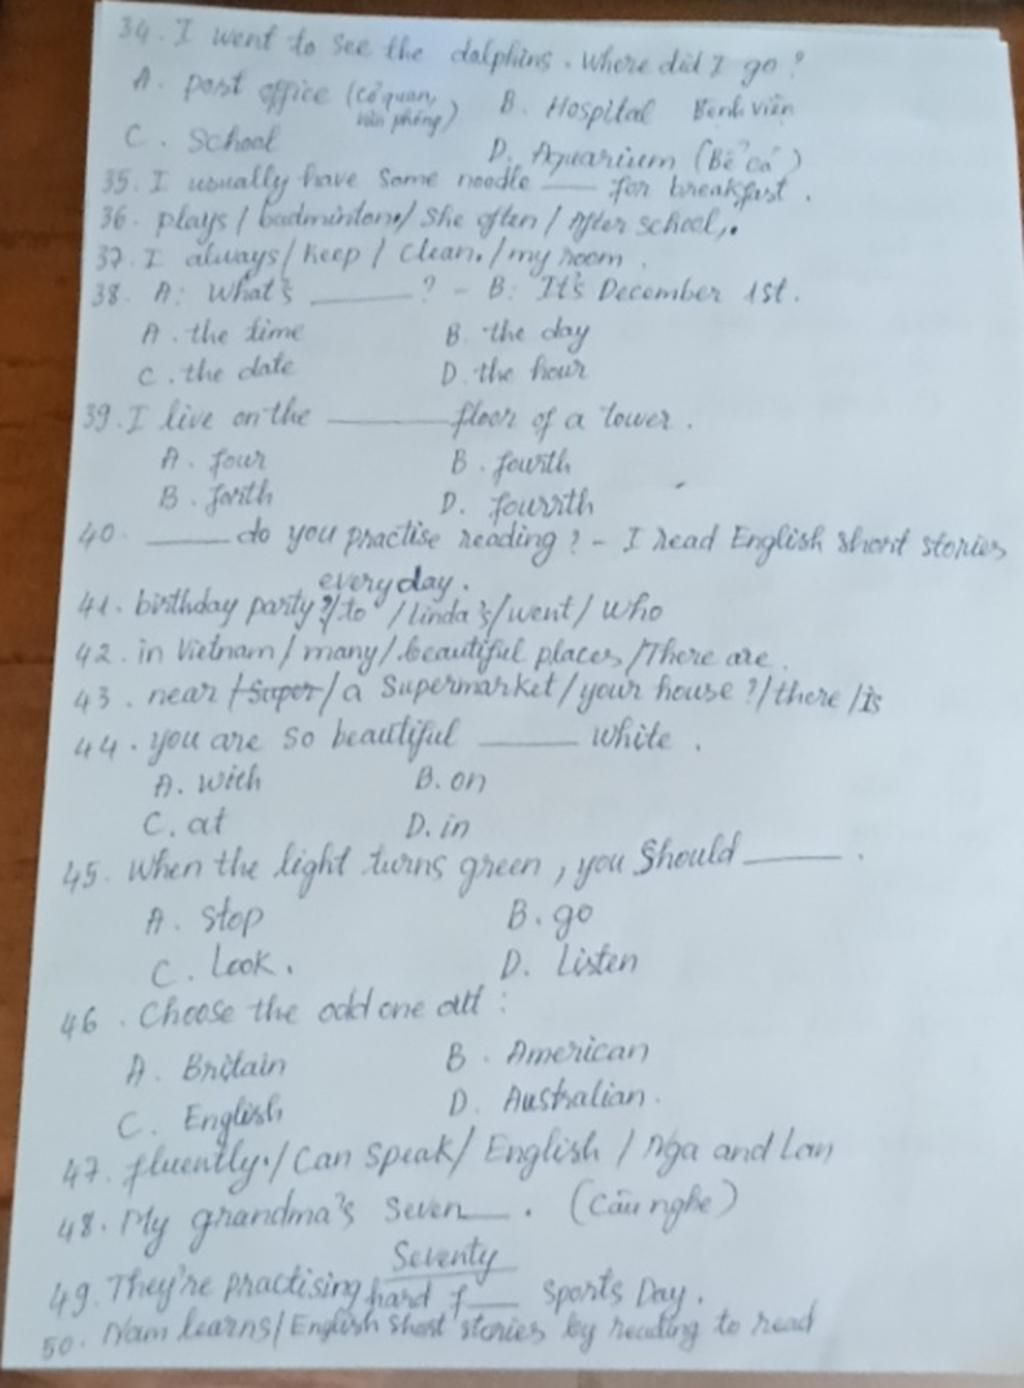 34. I went to see the dolphins. Where did I go?
A. post office (Cơ quan, văn phòng) B. Hospital Bệnh viện
C. School D. Aquarium (Bể cá)
35. I usually have some noodle ___ for breakfast.
36. plays / badminton / She often / After school,.
37. I always / keep / clean. / my room.
38. A: What's ______? - B: It's December 1st.
A. the time B. the day
C. the date D. the hour
39. I live on the ______ floor of a tower.
A. four B. fourth
B. forth D. fourrth
40. ____ do you practise reading? - I read English short stories
everyday.
41. birthday party?/ to / linda's / went / Who
42. in Vietnam / many / beautiful places / There are.
43. near / Super / a Supermarket / your house? / there / Is
44. you are so beautiful ____ white.
A. with B. on
C. at D. in
45. When the light turns green, you Should ____.
A. Stop B. go
C. Look. D. Listen
46. Choose the odd one out:
A. Britain B. American
C. English D. Australian.
47. fluently. / Can Speak / English / Nga and Lan
48. My grandma's Seven___. (Câu nghe)
Seventy
49. They're practising hard f___ Sports Day.
50. Nam learns / English Short stories by reading to read